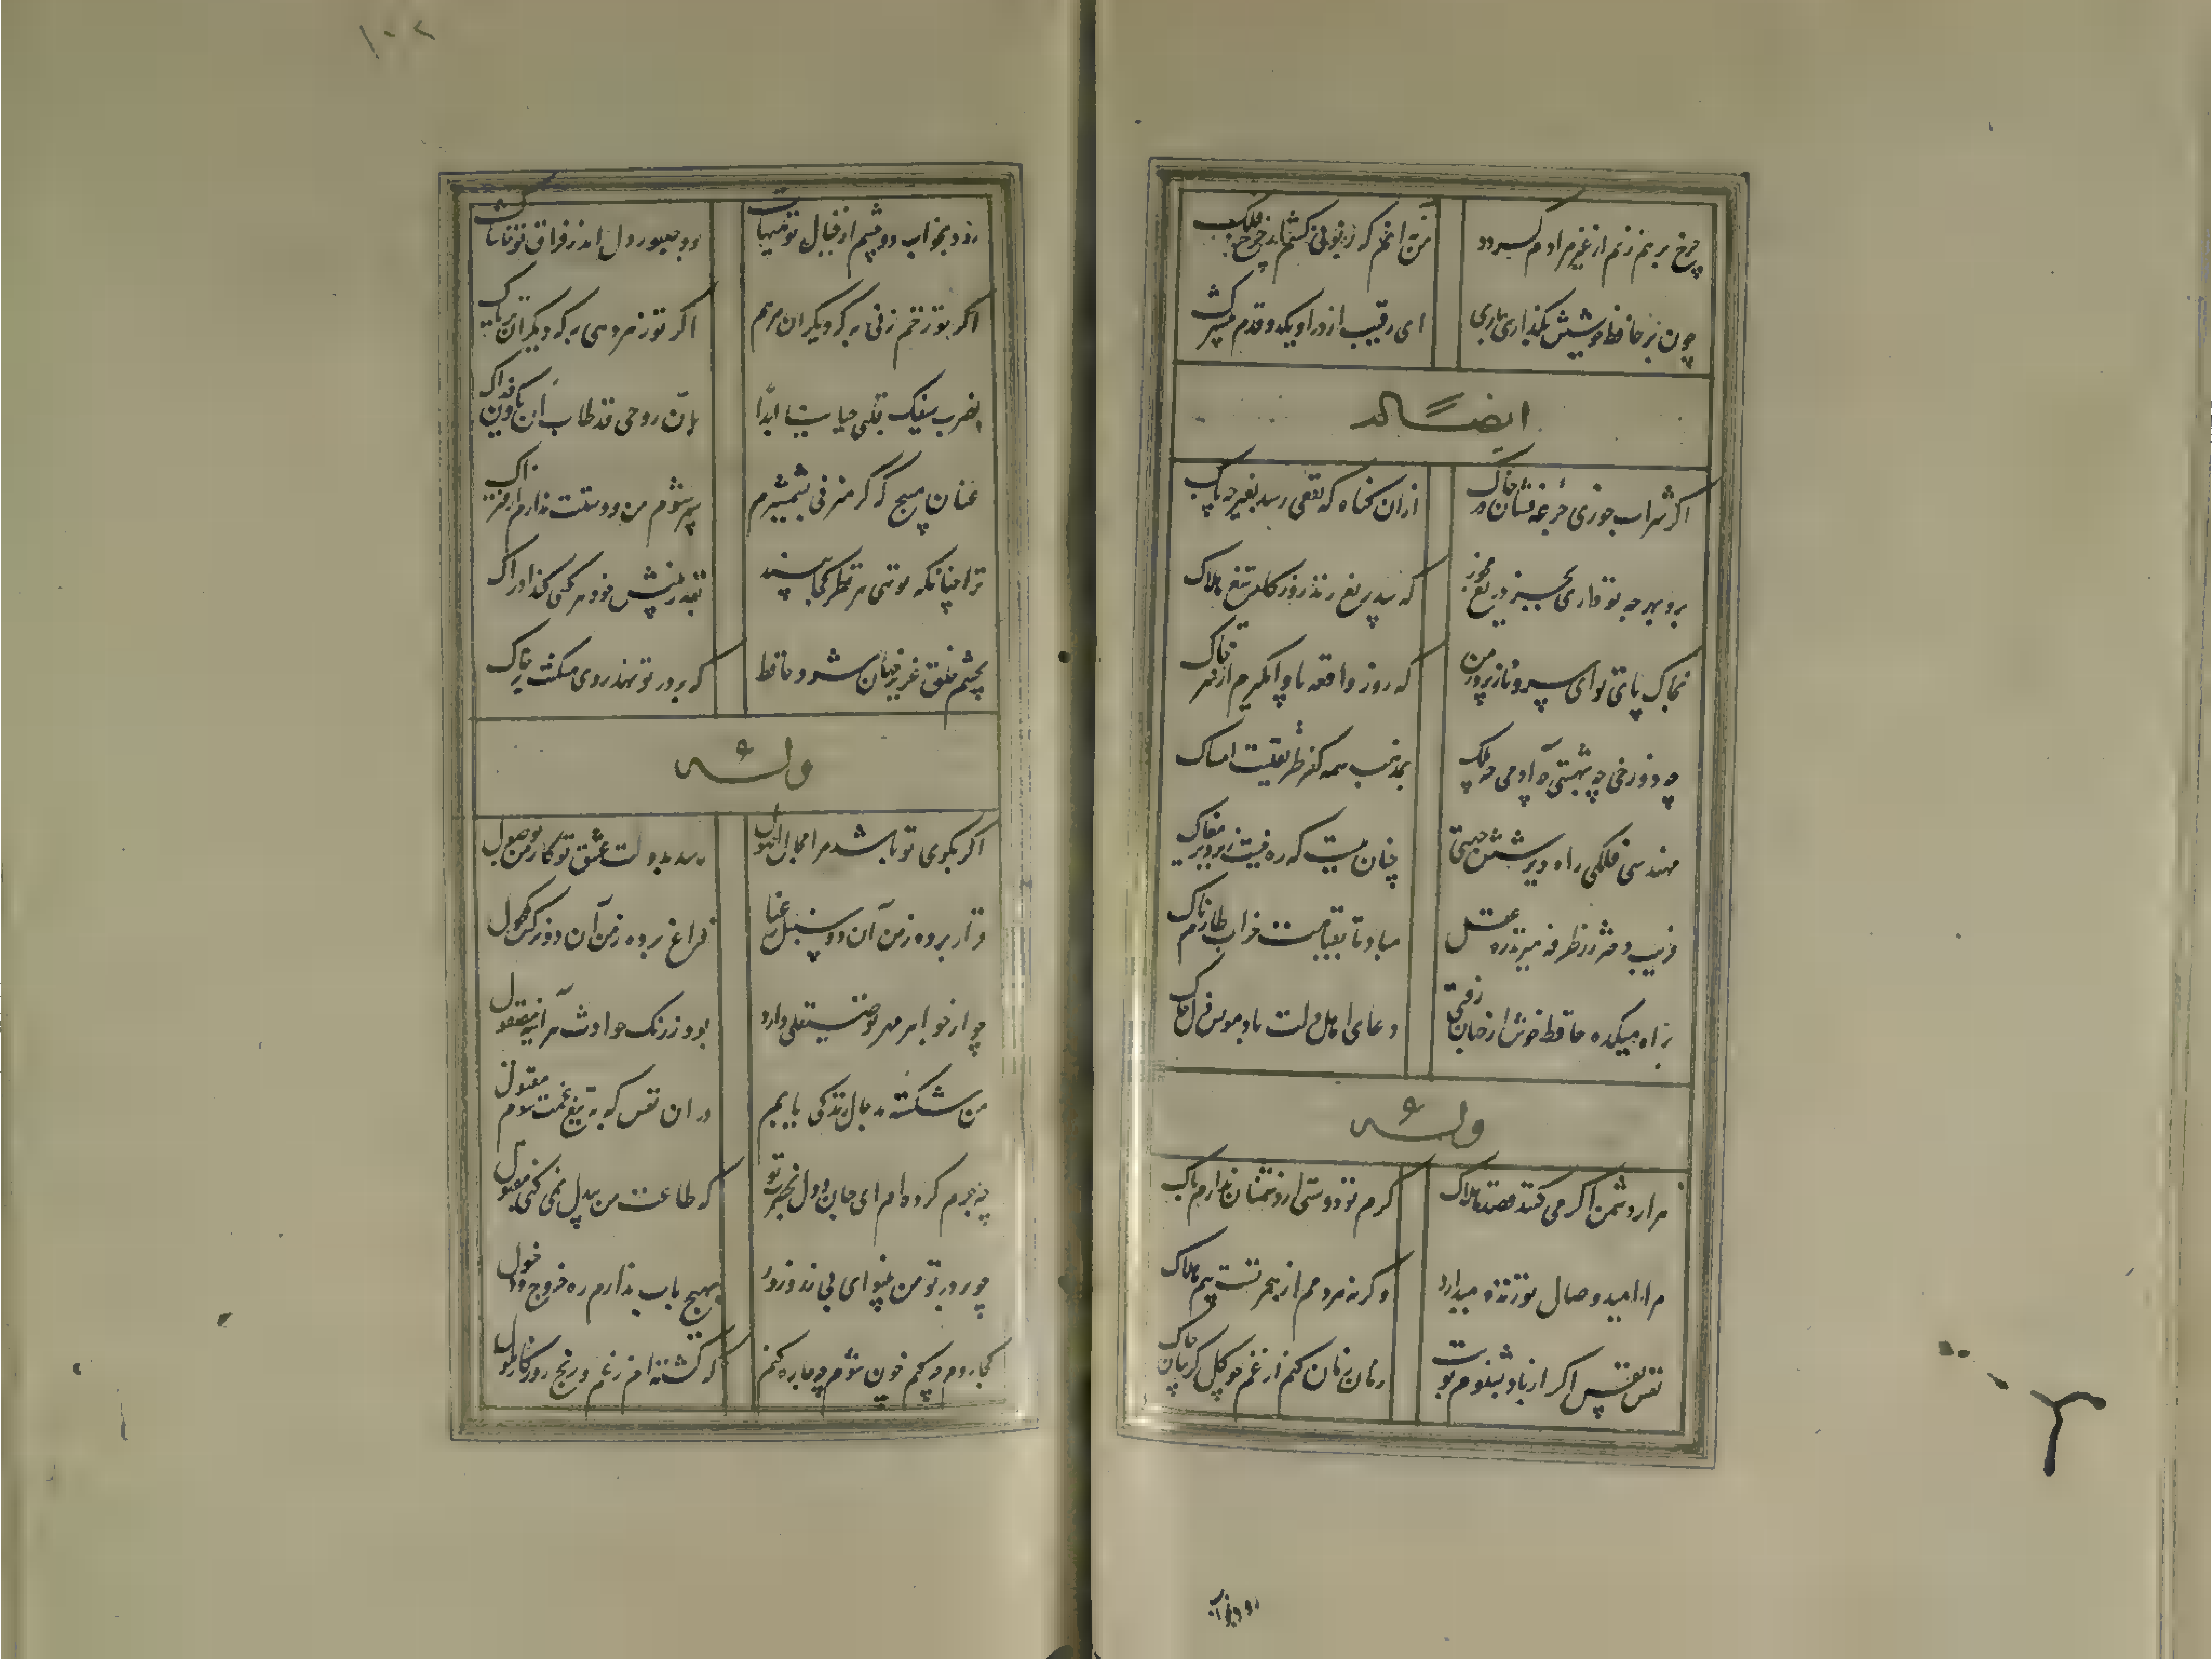 چرخ برهم زنم ار غیر مرادم گردد
من نه آنم که زبونی کشم از چرخ فلک
چون بر حافظ خویشش نگذاری باری
ای رقیب از در او یکدو قدم
ایضاً له
اگر شراب خوری جرعه فشان بر خاک
از آن گناه که نفعی رسد بغیر چه باک
برو بهر چه تو داری بخور دریغ مخور
که بیدریغ زند روزگار تیغ هلاک
بخاک پای تو ای سرو نازپرور من
که روز واقعه پا وامگیرم از سر خاک
چه دوزخی چه بهشتی چه آدمی چه ملک
بمذهب همه کفر طریقتست امساک
مهندس فلکی راه دیر شش جهتی
چنان ببست که ره نیست زیر دیر مغاک
فریب دختر رز طرفه میزند ره عقل
مباد تا بقیامت خراب طارم تاک
براه میکده حافظ خوش از جهان رفتی
دعای اهل دلت باد مونس دل پاک
وله
هزار دشمن اگر می کنند قصد هلاک
گرم تو دوستی از دشمنان ندارم باک
مرا امید وصال تو زنده میدارد
وگرنه هر دمم از هجر تست بیم هلاک
نفس نفس اگر از باد نشنوم بوت
زمان زمان کنم از غم چو گل گریبان چاک
رود بخواب
۱۰۲
رود بخواب دو چشم از خیال تو هیهات
بود صبور دل اندر فراق تو حاشاک
اگر تو زخم زنی به که دیگران مرهم
اگر تو زهر دهی به که دیگران تریاک
بضرب سیفک قتلی حیاتنا ابداً
لان روحی قد طاب ان یکون فداک
عنان مپیچ که گر میزنی بشمشیرم
سپر شوم من و دستت ندارم از فتراک
ترا چنانکه توئی هر نظر کجا بیند
بقدر بینش خود هر کسی کند ادراک
بچشم خلق عزیز جهان شود حافظ
که بر در تو نهد روی مسکنت بر خاک
وله
اگر بکوی تو باشد مرا مجال وصول
رسد بدولت عشق تو کار من بوصول
قرار برده ز من آن دو سنبل رعنا
فراغ برده ز من آن دو نرگس مکحول
چو از جواهر مهر تو صیقلی دارد
بود ز زنگ حوادث هر آینه مصقول
من شکسته بدحال زندگی یابم
در آن نفس که به تیغ غمت شوم مقتول
چه جرم کرده ام ای جان و دل بحضرت تو
که طاعت من بیدل نمی کنی مقبول
چو بر در تو من بینوای بی زر و زور
بهیچ باب ندارم ره خروج و دخول
کجا روم چکنم چون شوم چه چاره کنم
که گشته ام ز غم و رنج روزگار ملول